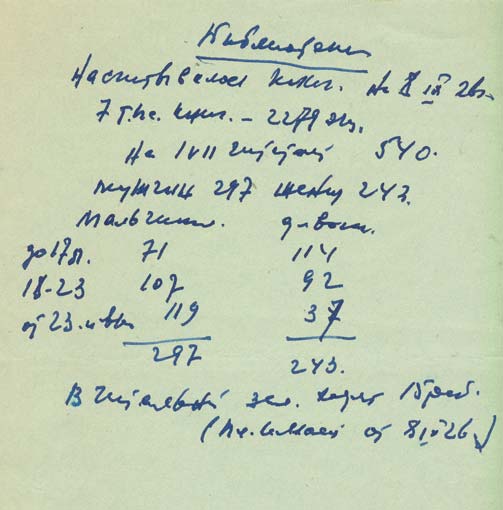 Библиотени
Насчитывалось книг. на IX 26 г.
7 т.
книг. – 2279 экз.
на 1 VII читателей 540.
мужчин 297 женщ 243.
мальчики. девоч.
до 17 л. 71 114
18-23 107 92
от 23. и выш 119 37
297 243.
В читальный зал. ходят 15 реб.